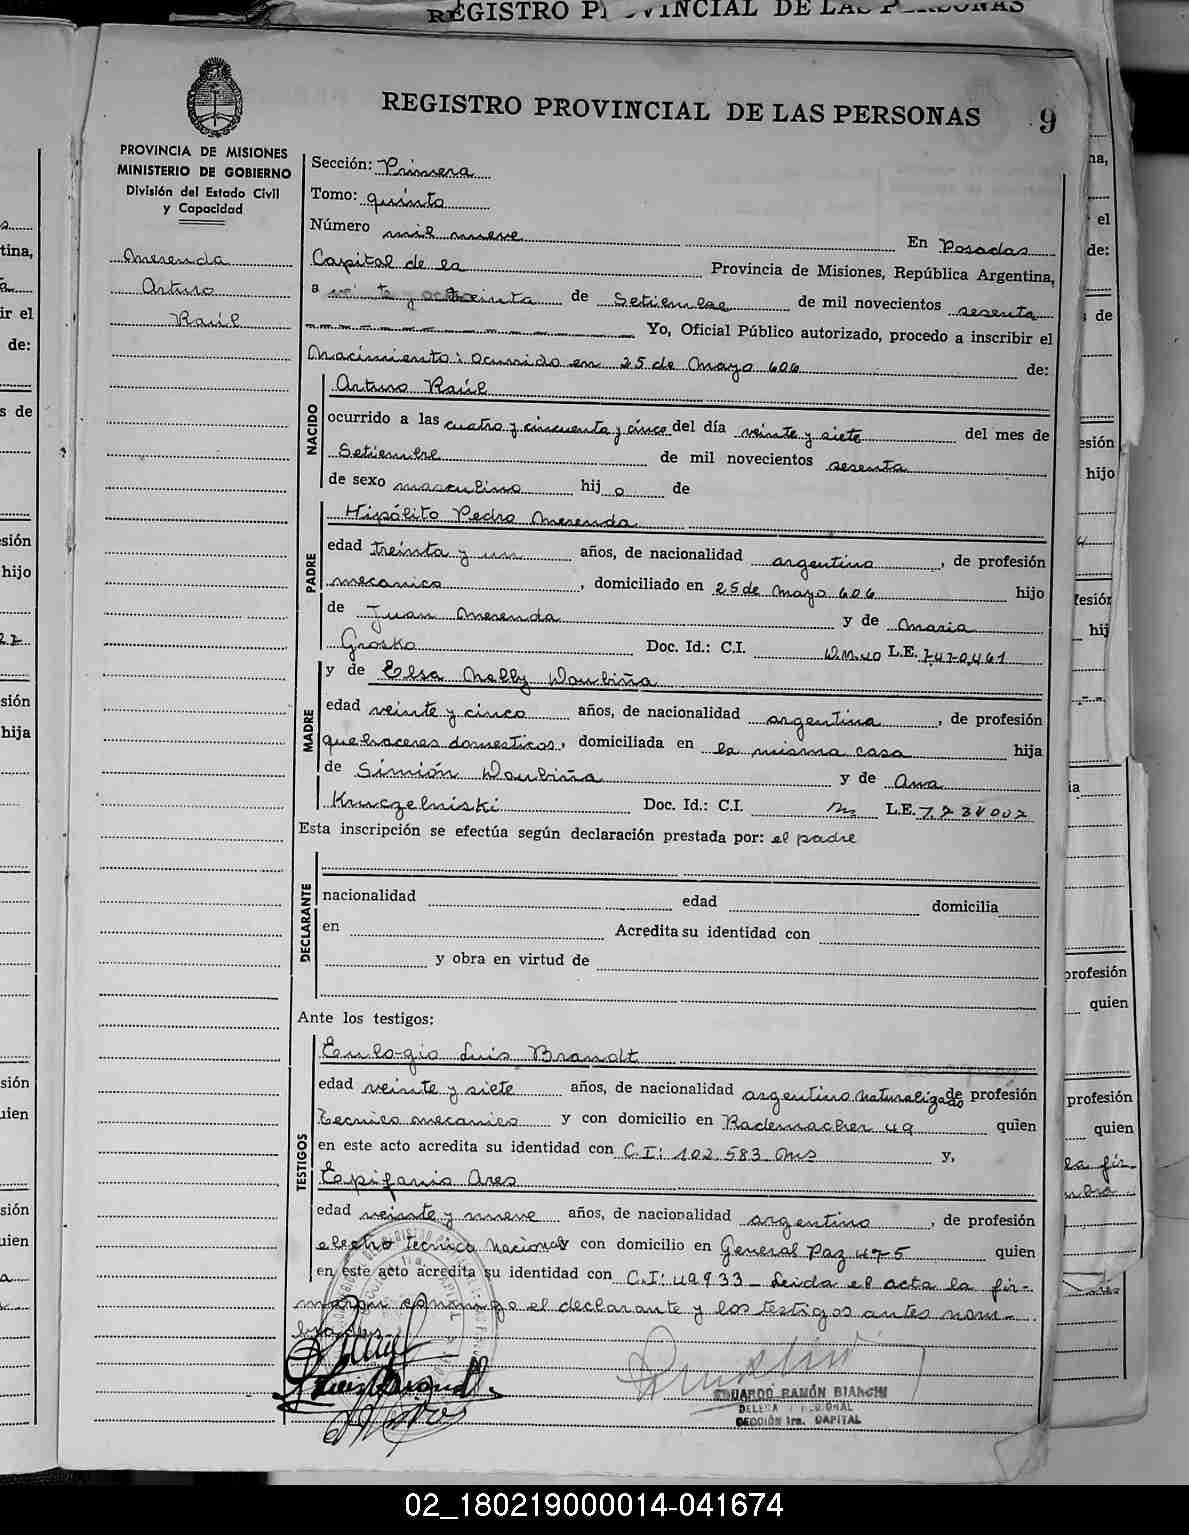 REGISTRO PROVINCIAL DE LAS PERSONAS
REGISTRO PROVINCIAL DE LAS PERSONAS 9
PROVINCIA DE MISIONES
MINISTERIO DE GOBIERNO
División del Estado Civil
y Capacidad
Merenda
Arturo
Raúl
Sección: Primera
Tomo: quinto
Número mil nueve En Posadas
Capital de la Provincia de Misiones, República Argentina,
a treinta de Setiembre de mil novecientos sesenta
Yo, Oficial Público autorizado, procedo a inscribir el
Nacimiento: ocurrido en 25 de Mayo 606 de:
NACIDO
Arturo Raúl
ocurrido a las cuatro y cincuenta y cinco del día veinte y siete del mes de
Setiembre de mil novecientos sesenta
de sexo masculino hijo de
PADRE
Hipólito Pedro Merenda
edad treinta y un años, de nacionalidad argentino, de profesión
mecanico, domiciliado en 25 de Mayo 606 hijo
de Juan Merenda y de Maria
Grosko Doc. Id.: C.I. L.E. 7470461
MADRE
y de Elsa Nelly Woubiña
edad veinte y cinco años, de nacionalidad argentina, de profesión
quehaceres domesticos, domiciliada en la misma casa hija
de Simión Woubiña y de Ana
Kruczelniski Doc. Id.: C.I. L.E.
Esta inscripción se efectúa según declaración prestada por: el padre
DECLARANTE
nacionalidad edad domicilia
en Acredita su identidad con
y obra en virtud de
Ante los testigos:
TESTIGOS
Eulogio Luis Brandt
edad veinte y siete años, de nacionalidad argentino naturalizado de profesión
Tecnico mecanico y con domicilio en Rademacher 49 quien
en este acto acredita su identidad con C.I: 102.583 Mns y,
Epifanio Ares
edad veinte y nueve años, de nacionalidad argentino, de profesión
electro tecnico Nacional y con domicilio en General Paz 475 quien
en este acto acredita su identidad con C.I: 49933 - Leida el acta la fir-
maron conmigo el declarante y los testigos antes nom-
brados
EDUARDO RAMÓN BIANCHI
DELEGADO REGIONAL
SECCIÓN 1ra. CAPITAL
02_180219000014-041674